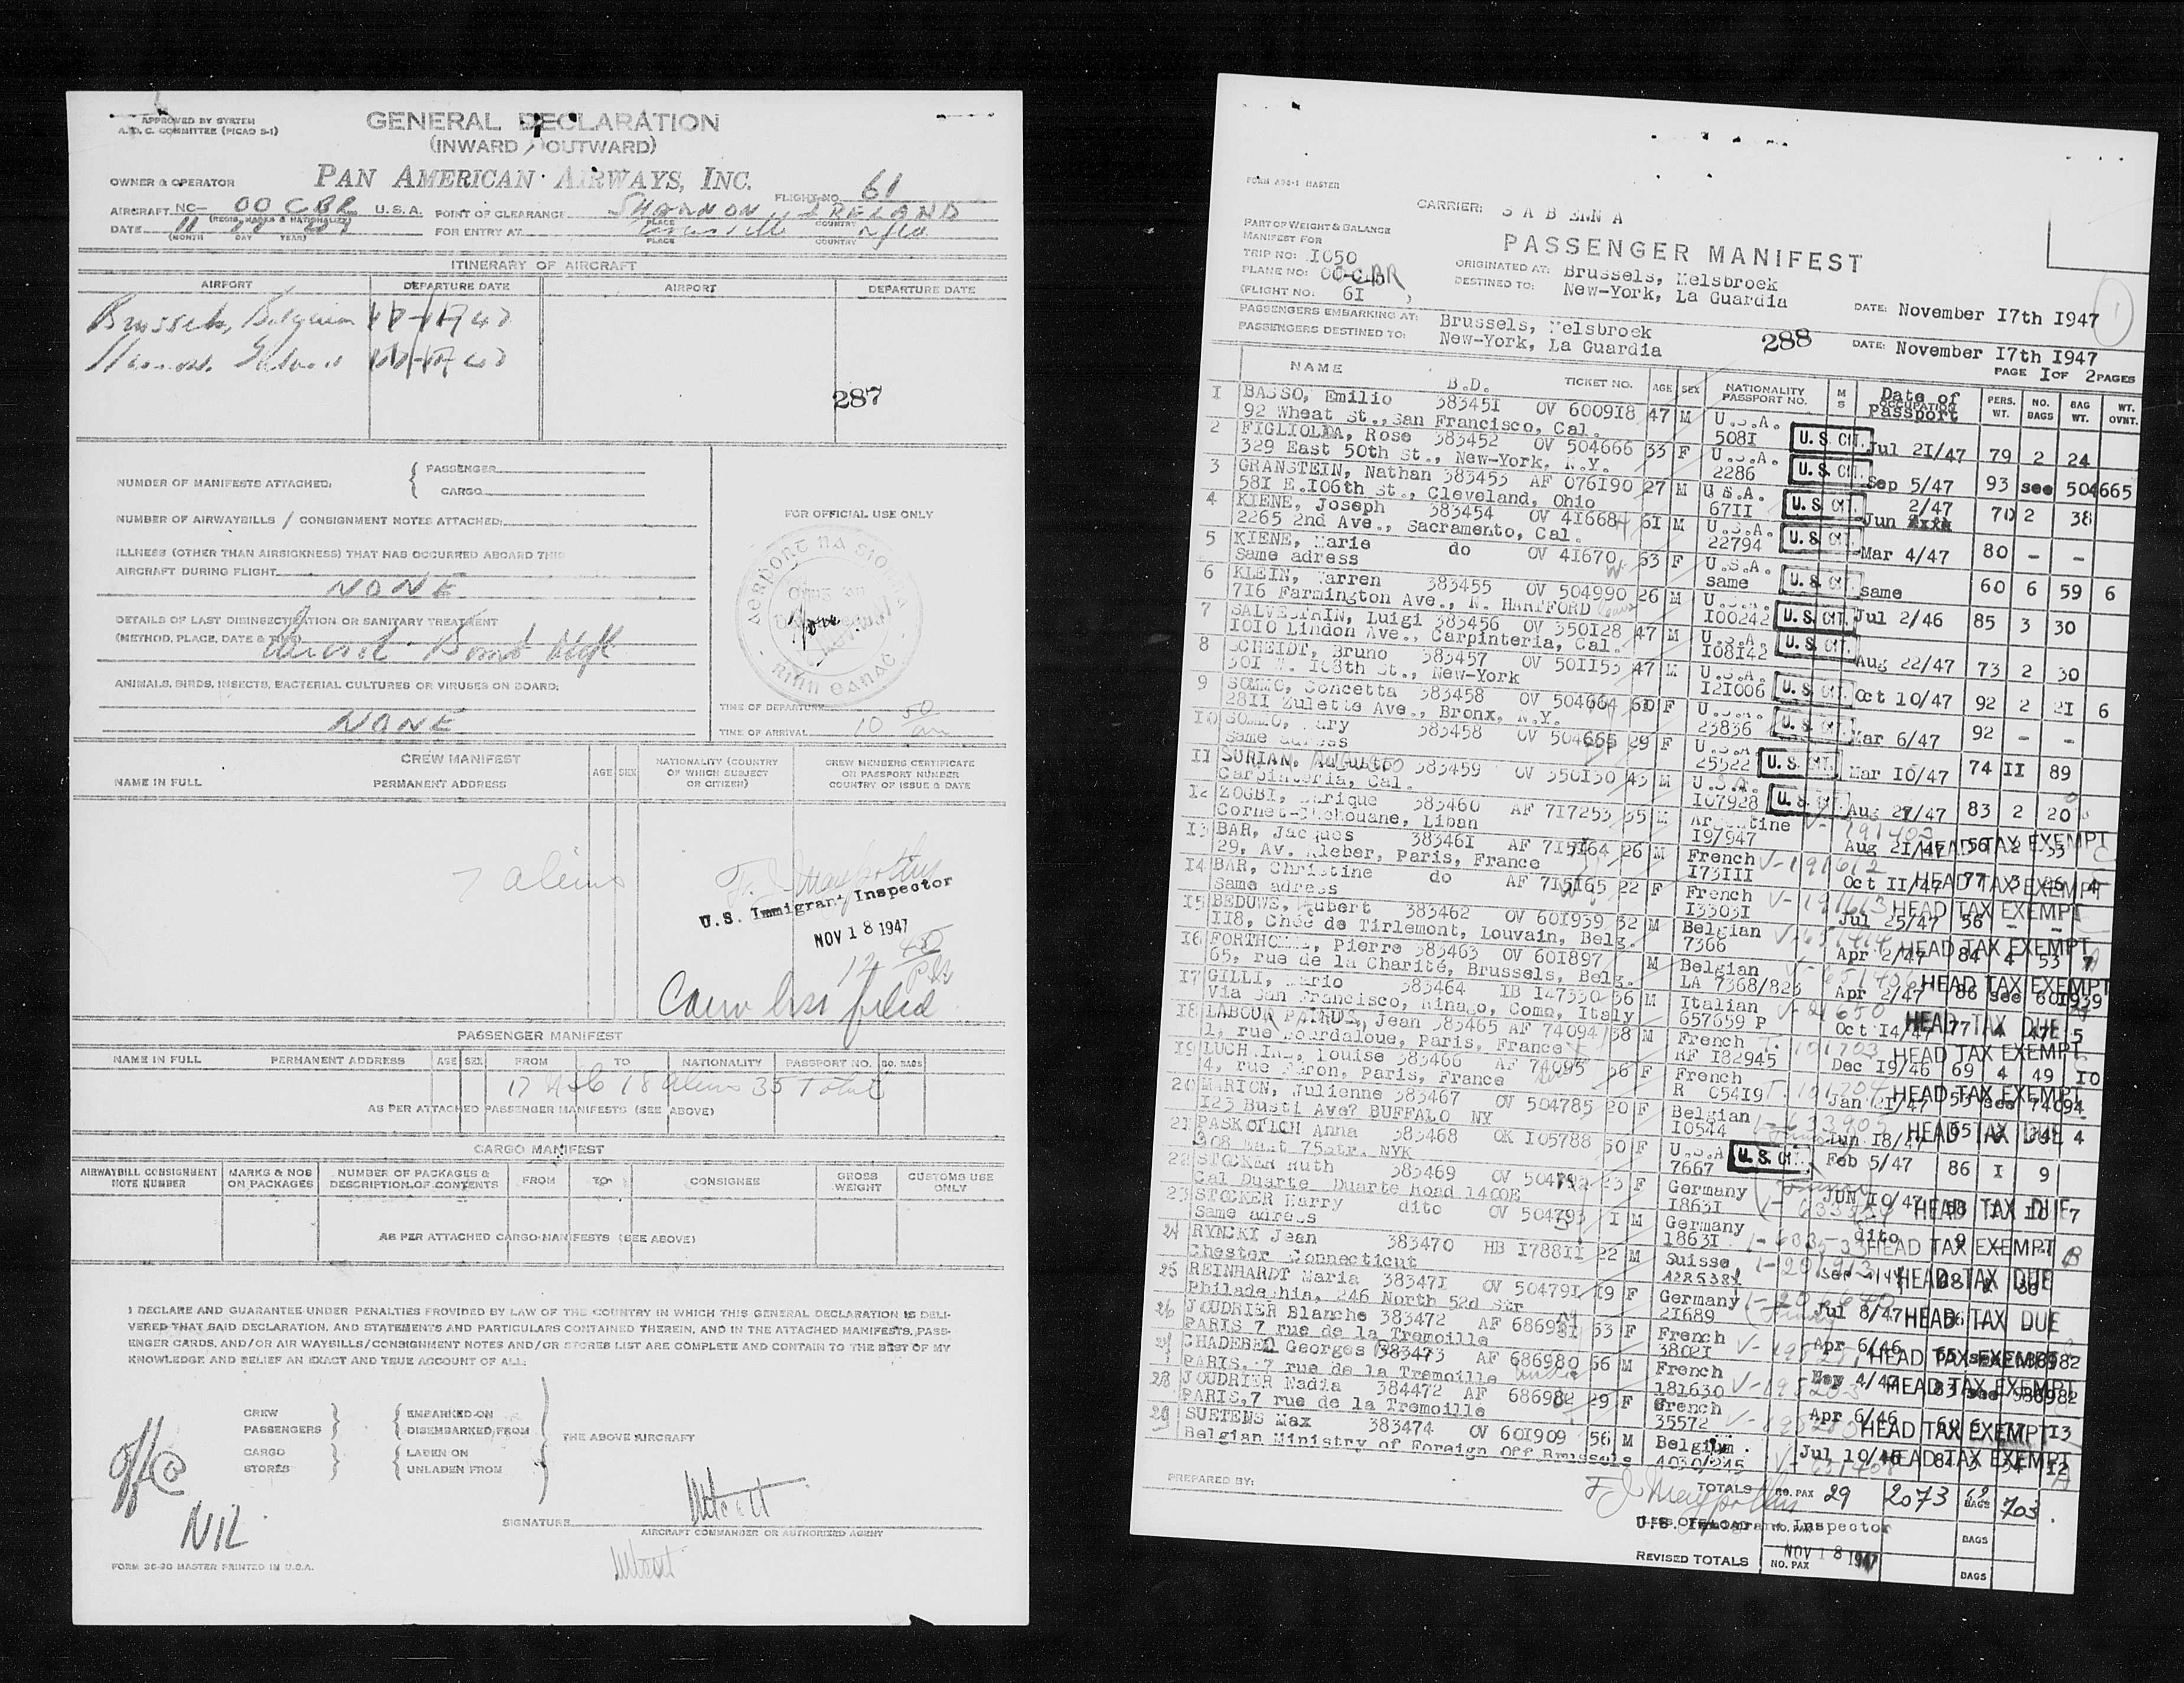 APPROVED BY SYSTEM
A.T.C. COMMITTEE (PICAO S-1)
GENERAL DECLARATION
(INWARD / OUTWARD)
PAN AMERICAN AIRWAYS, INC.
OWNER & OPERATOR
FLIGHT NO. 61
AIRCRAFT NC- OO CBR U.S.A. POINT OF CLEARANCE SHANNON IRELAND
(REGIS. MARKS & NATIONALITY) PLACE COUNTRY
DATE 11 FOR ENTRY AT
(MONTH DAY YEAR) PLACE COUNTRY
ITINERARY OF AIRCRAFT
AIRPORT DEPARTURE DATE AIRPORT DEPARTURE DATE
Brussels, Belgium
287
NUMBER OF MANIFESTS ATTACHED: PASSENGER
CARGO
NUMBER OF AIRWAYBILLS / CONSIGNMENT NOTES ATTACHED:
FOR OFFICIAL USE ONLY
ILLNESS (OTHER THAN AIRSICKNESS) THAT HAS OCCURRED ABOARD THIS
AIRCRAFT DURING FLIGHT
NONE
DETAILS OF LAST DISINSECTISATION OR SANITARY TREATMENT
(METHOD, PLACE, DATE & TIME)
Aerosol Bomb
ANIMALS, BIRDS, INSECTS, BACTERIAL CULTURES OR VIRUSES ON BOARD:
NONE
TIME OF DEPARTURE
TIME OF ARRIVAL 10 50 am
CREW MANIFEST
NAME IN FULL PERMANENT ADDRESS AGE SEX NATIONALITY (COUNTRY OF WHICH SUBJECT OR CITIZEN) CREW MEMBERS CERTIFICATE OR PASSPORT NUMBER COUNTRY OF ISSUE & DATE
7 aliens
U.S. Immigrant Inspector
NOV 18 1947
Crew list filed
PASSENGER MANIFEST
NAME IN FULL PERMANENT ADDRESS AGE SEX FROM TO NATIONALITY PASSPORT NO. NO. BAGS
17 USC 18 aliens 35 Total
AS PER ATTACHED PASSENGER MANIFESTS (SEE ABOVE)
CARGO MANIFEST
AIRWAYBILL CONSIGNMENT NOTE NUMBER MARKS & NOS ON PACKAGES NUMBER OF PACKAGES & DESCRIPTION OF CONTENTS FROM TO CONSIGNEE GROSS WEIGHT CUSTOMS USE ONLY
AS PER ATTACHED CARGO MANIFESTS (SEE ABOVE)
I DECLARE AND GUARANTEE UNDER PENALTIES PROVIDED BY LAW OF THE COUNTRY IN WHICH THIS GENERAL DECLARATION IS DELI-
VERED THAT SAID DECLARATION, AND STATEMENTS AND PARTICULARS CONTAINED THEREIN, AND IN THE ATTACHED MANIFESTS, PASS-
ENGER CARDS, AND/OR AIR WAYBILLS/CONSIGNMENT NOTES AND/OR STORES LIST ARE COMPLETE AND CONTAIN TO THE BEST OF MY
KNOWLEDGE AND BELIEF AN EXACT AND TRUE ACCOUNT OF ALL:
CREW EMBARKED ON
PASSENGERS DISEMBARKED FROM
THE ABOVE AIRCRAFT
CARGO LADEN ON
STORES UNLADEN FROM
NIL
SIGNATURE
AIRCRAFT COMMANDER OR AUTHORIZED AGENT
FORM 36-90 MASTER PRINTED IN U.S.A.
CARRIER: S A B E N A
PART OF WEIGHT & BALANCE
MANIFEST FOR
PASSENGER MANIFEST
TRIP NO: 1050
PLANE NO: OO-CBR
(FLIGHT NO: 61 )
ORIGINATED AT: Brussels, Melsbroek
DESTINED TO: New-York, La Guardia
DATE: November 17th 1947
PASSENGERS EMBARKING AT: Brussels, Melsbroek
PASSENGERS DESTINED TO: New-York, La Guardia
288
DATE: November 17th 1947
PAGE 1 OF 2 PAGES
NAME B.D. TICKET NO. AGE SEX NATIONALITY PASSPORT NO. M S Date of Passport PERS. WT. NO. BAGS BAG WT. WT. OVNT.
1 BASSO, Emilio 383451 OV 600918 47 M U.S.A.
92 Wheat St., San Francisco, Cal. 5081 U.S. CIT. Jul 21/47 79 2 24
2 FIGLIOLIA, Rose 383452 OV 504666 33 F U.S.A.
329 East 50th St., New-York, N.Y. 2286 U.S. CIT. Sep 5/47 93 see 504665
3 GRANSTEIN, Nathan 383453 AF 076190 27 M U.S.A.
581 E.106th St., Cleveland, Ohio 6711 U.S. CIT. Jun 2/47 70 2 38
4 KIENE, Joseph 383454 OV 41668 61 M U.S.A.
2265 2nd Ave., Sacramento, Cal. 22794 U.S. CIT. Mar 4/47 80 - -
5 KIENE, Marie do OV 41670 63 F U.S.A.
Same adress same U.S. CIT. same 60 6 59 6
6 KLEIN, Warren 383455 OV 504990 26 M U.S.A.
716 Farmington Ave., N. HARTFORD 100242 U.S. CIT. Jul 2/46 85 3 30
7 SALVESTRIN, Luigi 383456 OV 350128 47 M U.S.A.
1010 Lindon Ave., Carpinteria, Cal. 108142 U.S. CIT. Aug 22/47 73 2 30
8 SCHEIDT, Bruno 383457 OV 501153 47 M U.S.A.
501 W. 168th St., New-York 121006 U.S. CIT. Oct 10/47 92 2 21 6
9 SOMMO, Concetta 383458 OV 504664 60 F U.S.A.
2811 Zulette Ave., Bronx, N.Y. 23836 U.S. CIT. Mar 6/47 92 - -
10 SOMMO, Mary 383458 OV 504665 29 F U.S.A.
Same adress 25522 U.S. CIT. Mar 10/47 74 11 89
11 SURIAN, 383459 OV 350130 43 M U.S.A.
Carpinteria, Cal. 107928 U.S. CIT. Aug 27/47 83 2 20
12 ZOGBI, 383460 AF 717253 35 M Argentine
Cornet-Chehouane, Liban 19/947 Aug 21/47 HEAD TAX EXEMPT
13 BAR, Jacques 383461 AF 26 M French
29, Av. Kleber, Paris, France 173111 Oct 11/47 77 3 HEAD TAX EXEMPT
14 BAR, Christine do AF 22 F French
Same adress 133031 Jul 25/47 56 - - HEAD TAX EXEMPT
15 BEDUWE, Hubert 383462 OV 601939 32 M Belgian
118, Chée de Tirlemont, Louvain, Belg. 7366 Apr 2/47 84 4 53 7 HEAD TAX EXEMPT
16 FORTHOMME, Pierre 383463 OV 601897 M Belgian
65, rue de la Charité, Brussels, Belg. LA 7368/823 Apr 2/47 86 see 601939 HEAD TAX EXEMPT
17 GILLI, Mario 383464 IB 147330 36 M Italian
Via San Francisco, Ninago, Como, Italy 657659 P Oct 14/47 77 4 47 5 HEAD TAX DUE
18 LABOUR Jean 383465 AF 74094 38 M French
1, rue Bourdaloue, Paris, France RF 182945 Dec 19/46 69 4 49 10 HEAD TAX EXEMPT
19 Louise 383466 AF 74095 36 F French
4, rue Paris, France R 05419 Jan 21/47 53 see 74094 HEAD TAX EXEMPT
20 MARION, Julienne 383467 OV 504785 20 F Belgian
123 Busti Ave? BUFFALO NY 10544 Jun 18/47 HEAD TAX DUE 4
21 PASKOTICH Anna 383468 OK 105788 50 F U.S.A
308 East 75str. NYK 7667 U.S. CIT. Feb 5/47 86 1 9
22 STOCKER Ruth 383469 OV 504792 23 F Germany
Cal Duarte Duarte Road 1400E 18631 JUN 10/47 HEAD TAX DUE 7
23 STOCKER Harry dito OV 504793 1 M Germany
Same adress 18631 dito HEAD TAX EXEMPT
24 RYNCKI Jean 383470 HB 178811 22 M Suisse
Chester Connecticut HEAD TAX DUE
25 REINHARDT Maria 383471 OV 504791 19 F Germany
Philadephia, 246 North 52d Str 21689 Jul 8/47 HEAD TAX DUE
26 JOUDRIER Blanche 383472 AF 53 F French
PARIS 7 rue de la Tremoille 38021 Apr 6/46 HEAD TAX EXEMPT
27 Georges 383473 AF 686980 36 M French
PARIS. 7 rue de la Tremoille 181630 4/47 83 see 686982 HEAD TAX EXEMPT
28 JOUDRIER Nadia 384472 AF 686982 29 F French
PARIS,7 rue de la Tremoille 35572 Apr 6/46 HEAD TAX EXEMPT 13
29 SUETENS Max 383474 OV 601909 56 M Belgium
Belgian Ministry of Foreign Off.Brussels 4030/245 Jul 10/46 HEAD TAX EXEMPT 12
PREPARED BY:
TOTALS NO. PAX 29 2073 62 BAGS 703
U.S. Immigrant Inspector
BAGS
NOV 18 1947
REVISED TOTALS NO. PAX BAGS